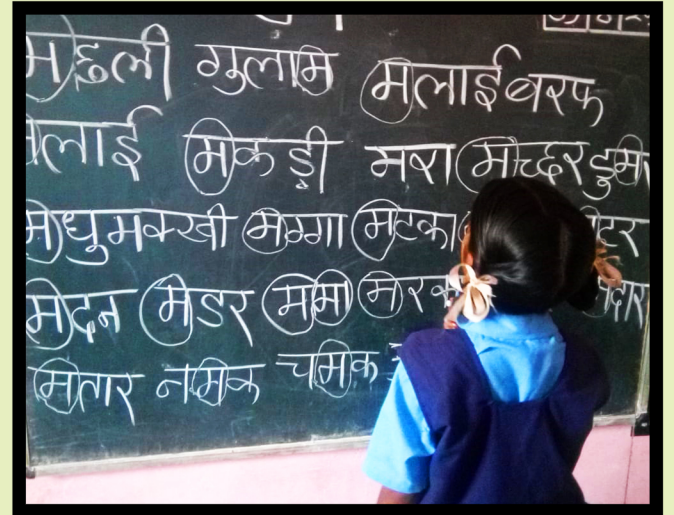 मछली गुलाम मलाईबरफ
लाई मकड़ी मरा मच्छर डुम
मधुमक्खी मग्गा मटका टर
मदन मडर ममा मरक दार
मतार नमक चमक